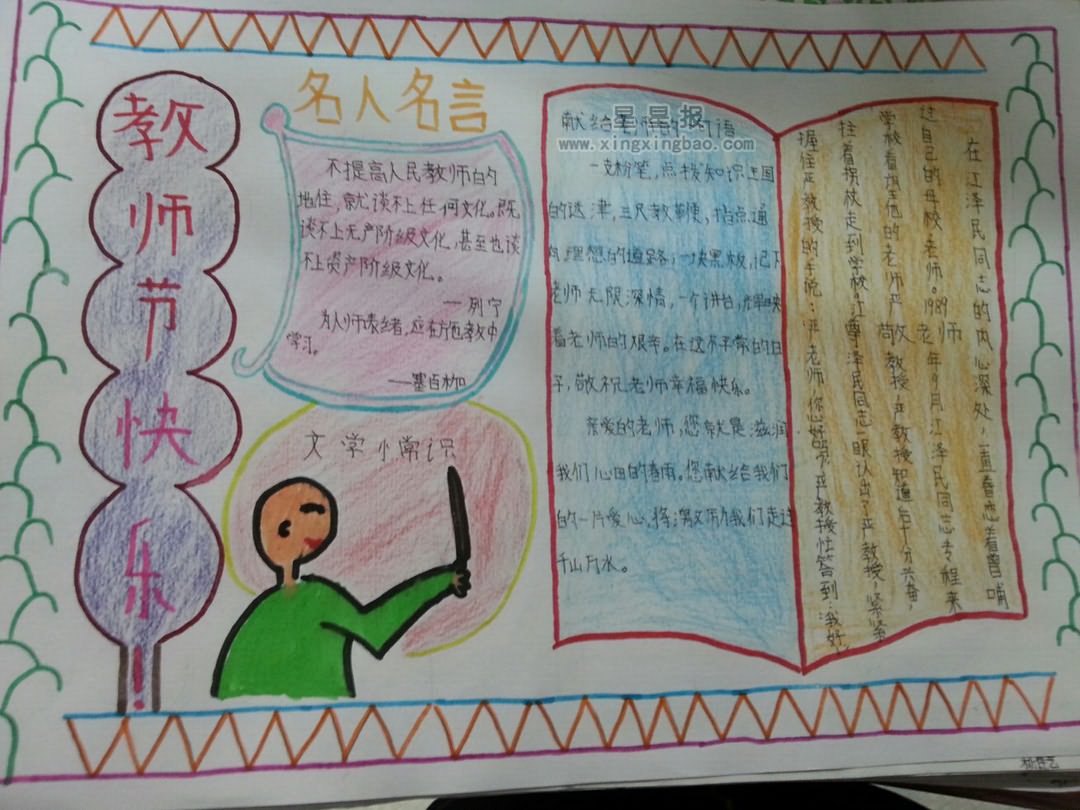 教
师
节
快
乐
!
名人名言
不提高人民教师的
地住,就谈不上任何文化。既
谈不上无产阶级文化,甚至也谈
不上资产阶级文化。
——列宁
为人师表者,应在施教中
学习。
——塞百枷
文学小常识
星星报
www.xingxingbao.com
献给老师的 话语
一支粉笔,点拨知识王国
的迷津,三尺教鞭,指点通
向理想的道路;一块黑板,记下
老师无限深情,一个讲台,辉映
着老师的艰辛。在这不平常的日
子,敬祝老师幸福快乐。
亲爱的老师,您就是滋润
我们心田的春雨。您献给我们
的一片爱心,将激励我们走过
千山万水。
在江泽民同志的内心深处,一直眷恋着曾哺
过自己的母校老师。1989年9月江泽民同志专程来
学校看望他的老师严敬教授,严教授知道后十分兴奋,
拄着拐杖走到学校。江泽民同志一眼认出了严教授,紧紧
握住严教授的手说:严老师您好!严教授忙答到:我好
尊
敬
老
师